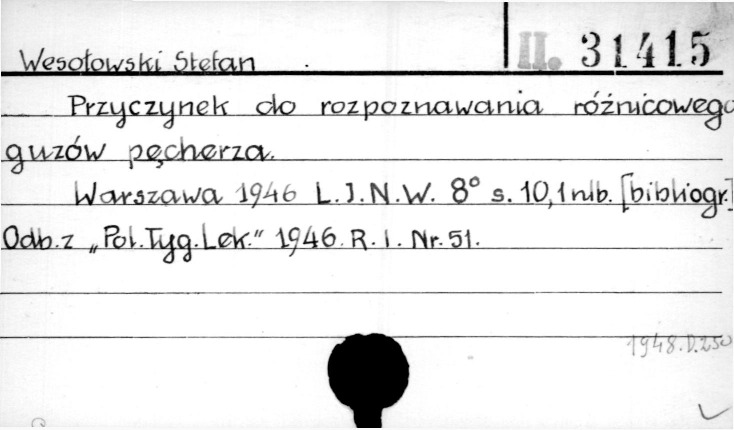 II. 31415
Wesołowski Stefan
Przyczynek do rozpoznawania różnicowego
guzów pęcherza.
Warszawa 1946 L.I.N.W. 8° s. 10,1 nlb. [bibliogr.]
Odb. z „Pol. Tyg. Lek." 1946. R. I. Nr. 51.
1948.D.250